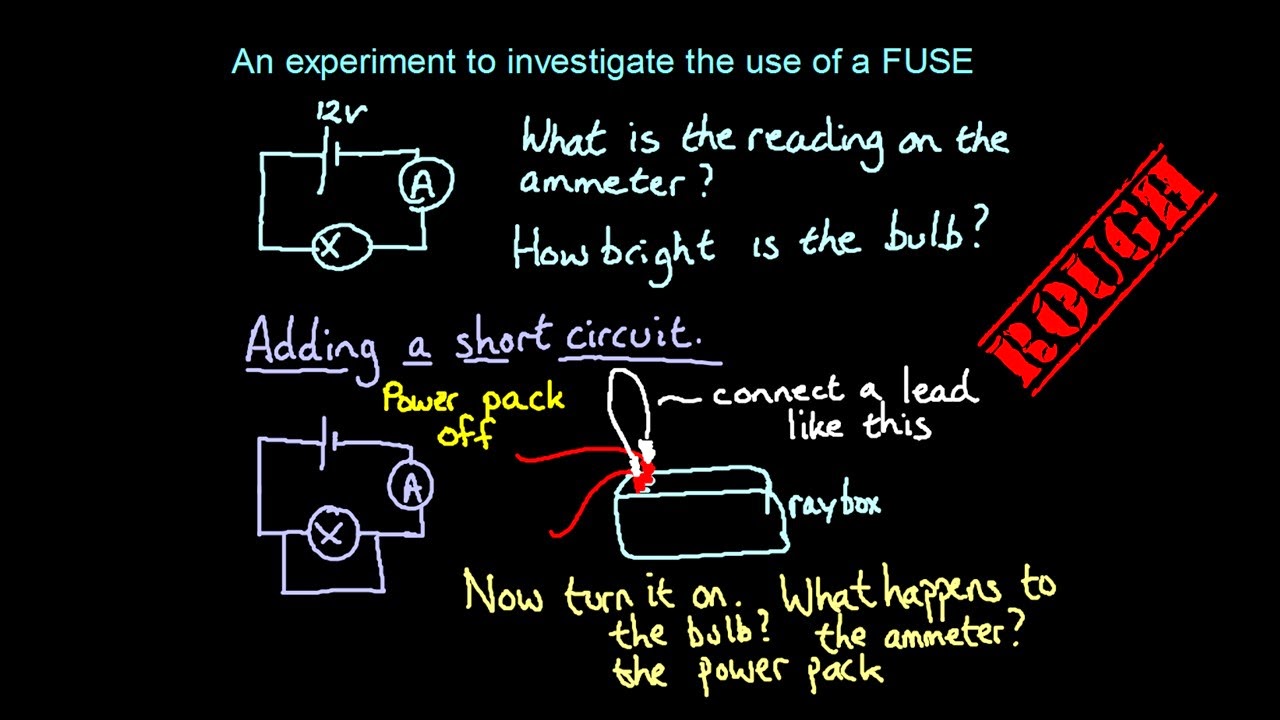 An experiment to investigate the use of a FUSE
12V
A
X
What is the reading on the
ammeter?
How bright is the bulb?
ROUGH
Adding a short circuit.
Power pack
off
connect a lead
like this
A
X
raybox
Now turn it on. What happens to
the bulb? the ammeter?
the power pack